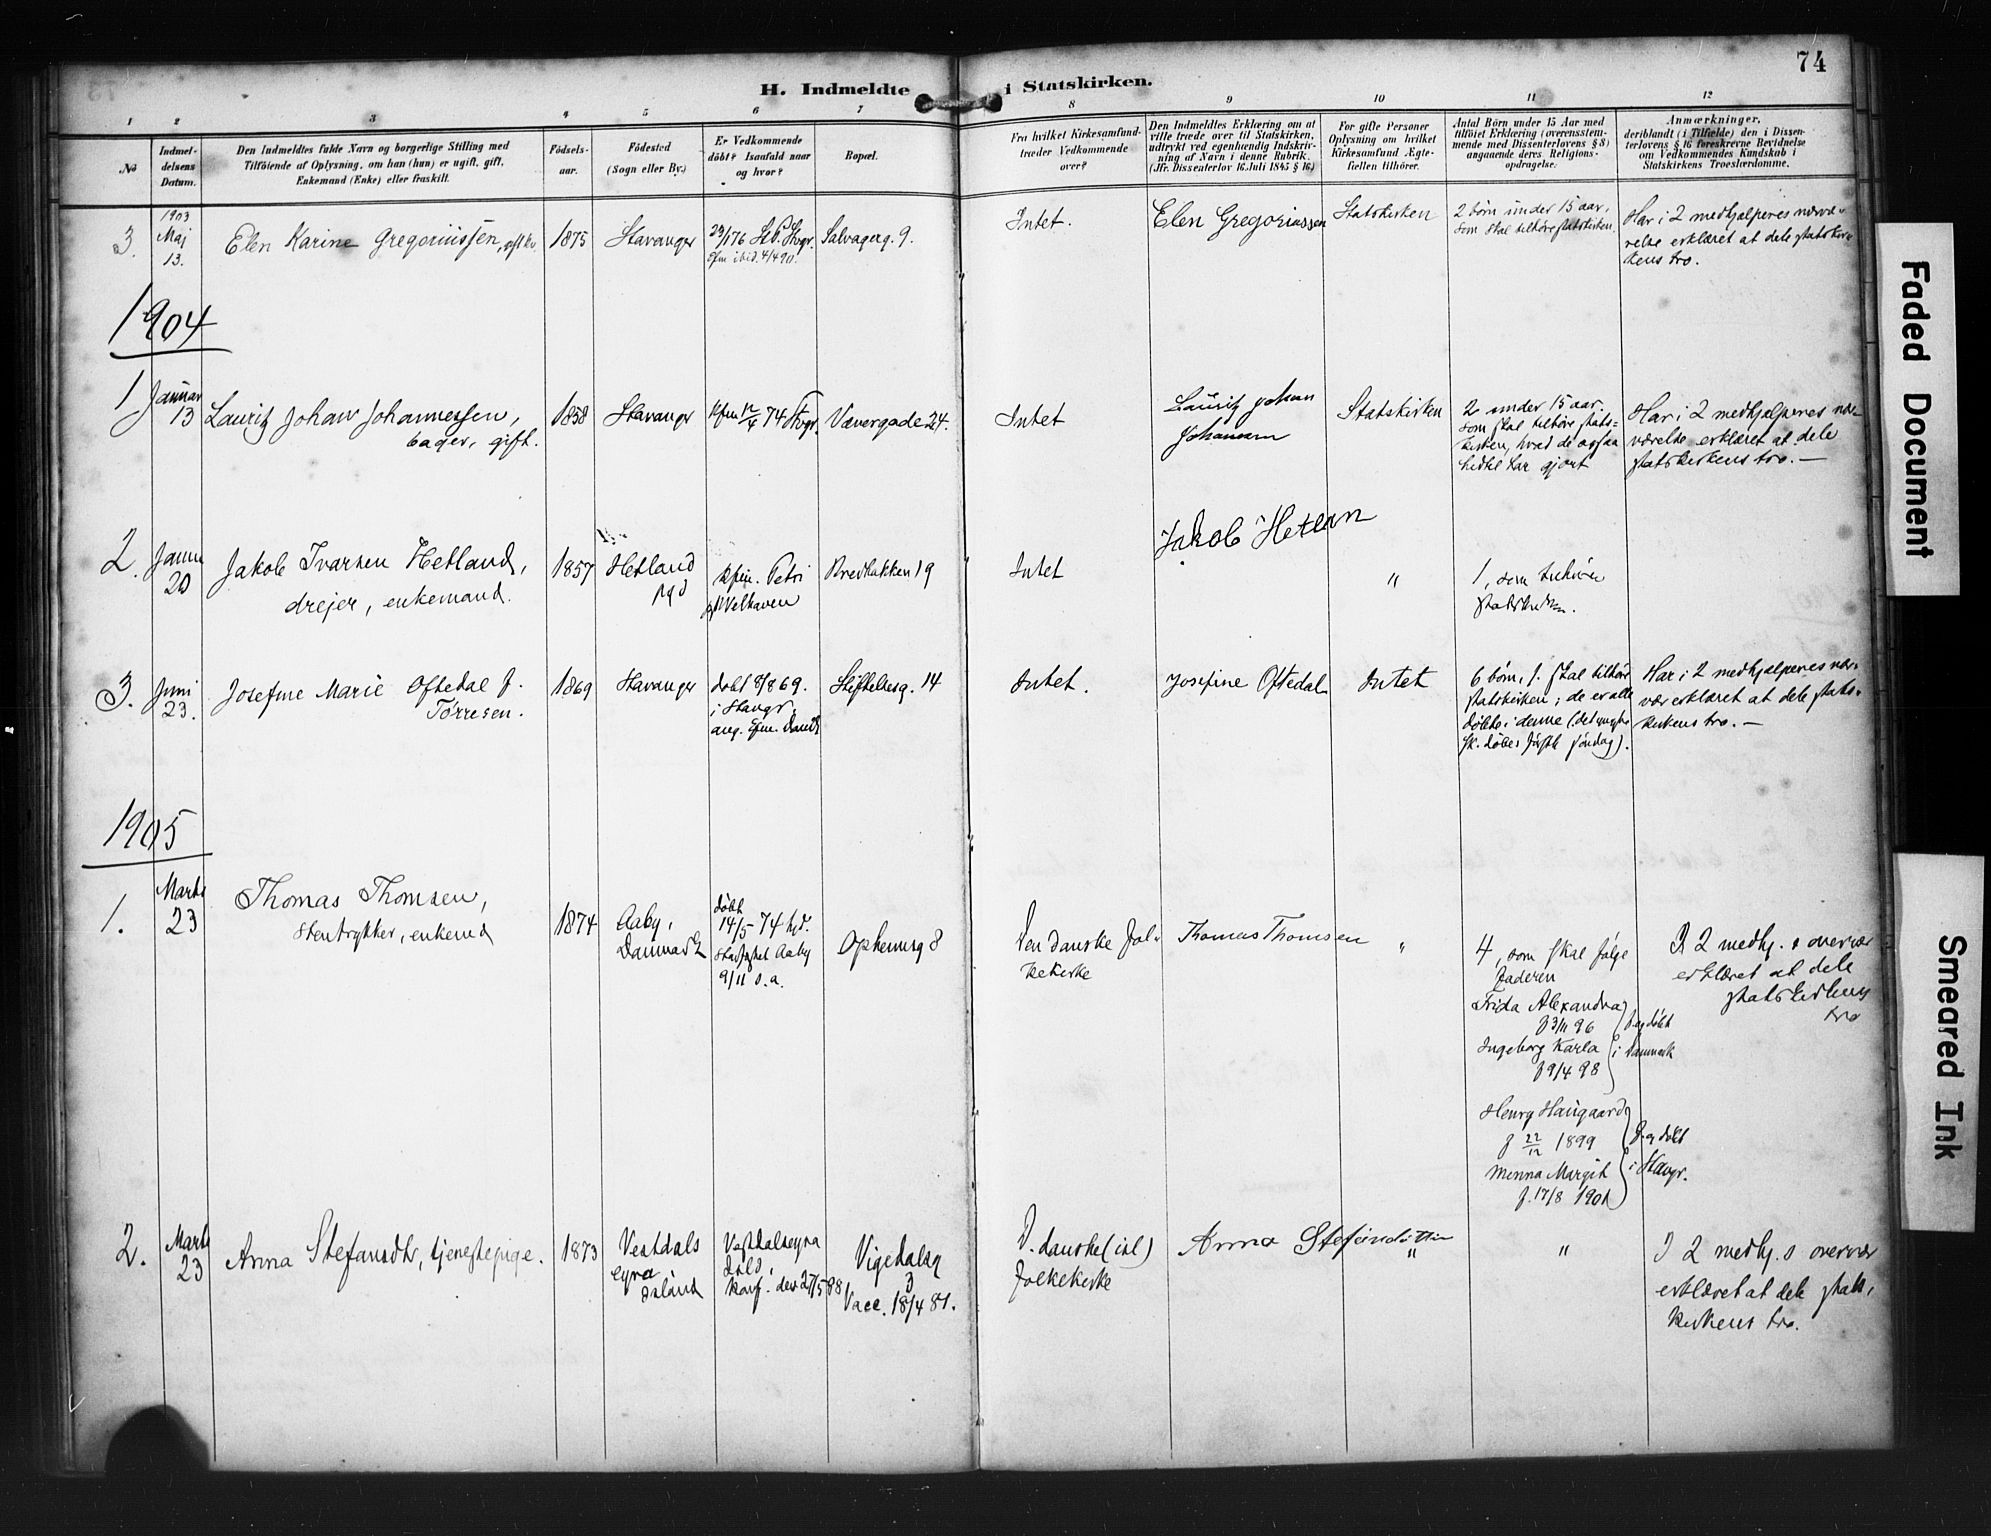 74
H. Indmeldte i Statskirken.
1 2 3 4 5 6 7 8 9 10 11 12
No
Indmel-
delsens
Datum.
Den Indmeldtes fulde Navn og borgerlige Stilling med
Tilföiende af Oplysning, om han (hun) er ugift, gift,
Enkemand (Enke) eller fraskilt.
Födsels-
aar.
Födested
(Sogn eller By.)
Er Vedkommende
döbt? Isaafald naar
og hvor?
Bopæl.
Fra hvilket Kirkesamfund
træder Vedkommende
over?
Den Indmeldtes Erklæring om at
ville træde over til Statskirken,
udtrykt ved egenhændig Indskriv-
ning af Navn i denne Rubrik.
(Jfr. Dissenterlov 16 Juli 1845 § 16)
For gifte Personer
Oplysning om hvilket
Kirkesamfund Ægte-
fællen tilhörer.
Antal Börn under 15 Aar med
tilföiet Erklæring (overensstem-
mende med Dissenterlovens § 8)
angaaende deres Religions-
opdragelse.
Anmærkninger,
deriblandt (i Tilfælde) den i Dissen-
terlovens § 16 foreskrevne Bevidnelse
om Vedkommendes Kundskab i
Statskirkens Troeslærdomme.
3.
1903
Maj
13.
Elen Karine Gregoriussen,
1875
Stavanger
Salvagerg. 9.
Intet.
Elen Gregoriussen
Statskirken
2 børn under 15 aar,
som skal tilhøre statskirken.
Har i 2 medhjælperes nærvæ-
relse erklæret at dele statskir-
kens tro.
1904
1
Januar
13
Lauritz Johan Johannessen,
bager, gift.
1858
Stavanger
Kfm 12/4 74 Stvgr.
Vævergade 24.
Intet
Lauritz Johan
Johannsen
Statskirken
2 under 15 aar
som skal tilhøre stats-
kirken, hvad de ogsaa
hidtil har gjort
Har i 2 medhjælperes nær-
værelse erklæret at dele
statskirkens tro. —
2.
Janu
20
Jakob Ivarsen Hetland,
drejer, enkemand.
1857
Hetland
pgd
Kfm. Petri
Welhaven
Bredbakken 19
Intet
Jakob Hetlan
"
1, som tilhører
statskirken.
3.
Juni
23.
Josefine Marie Oftedal f.
Tørresen.
1869
Stavanger
døbt 8/8 69.
i Stavgr.
Stiftelsesg. 14
Intet.
Josefine Oftedal
Intet
6 børn, s. skal tilhøre
statskirken; de er alle
døbte i denne (det yngste
sk. døbes første søndag).
Har i 2 medhjælperes nær-
vær erklæret at dele stats-
kirkens tro. —
1905
1.
Marts
23
Thomas Thomsen,
Stentrykker, enkemd
1874
Aaby,
Danmark
døbt
14/5 74
Aaby
9/11 s. a.
8
Den danske Fol-
kekirke
Thomas Thomsen
"
4, som skal følge
faderen
Frida Alexandra
f 3/11 96
Ingeborg Karla
f 9/4 98
f. og døbt
i Danmark
Henry Haugaard
f 22/12 1899
Minna Margit
f. 17/8 1901
f. og døbt
i Stavgr.
I 2 medhj.s overvær
erklæret at dele
statskirkens
tro
2.
Marts
23
Anna Stefansdtr, tjenestepige.
1873
Vestdals
eyra
Island
Vestdalseyra
konf. den 27/5 88
Vigedalsg
3
Vacc. 18/4 81.
D. danske (isl)
Folkekirke
Anna Stefansdóttir
"
"
I 2 medhj.s overvær
erklæret at dele stats-
kirkens tro.
Faded Document
Smeared Ink